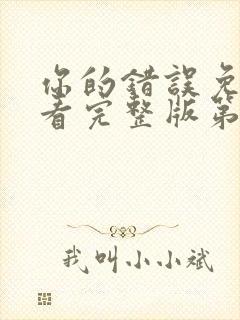 你的錯誤免
看完整版第
我叫小小斌